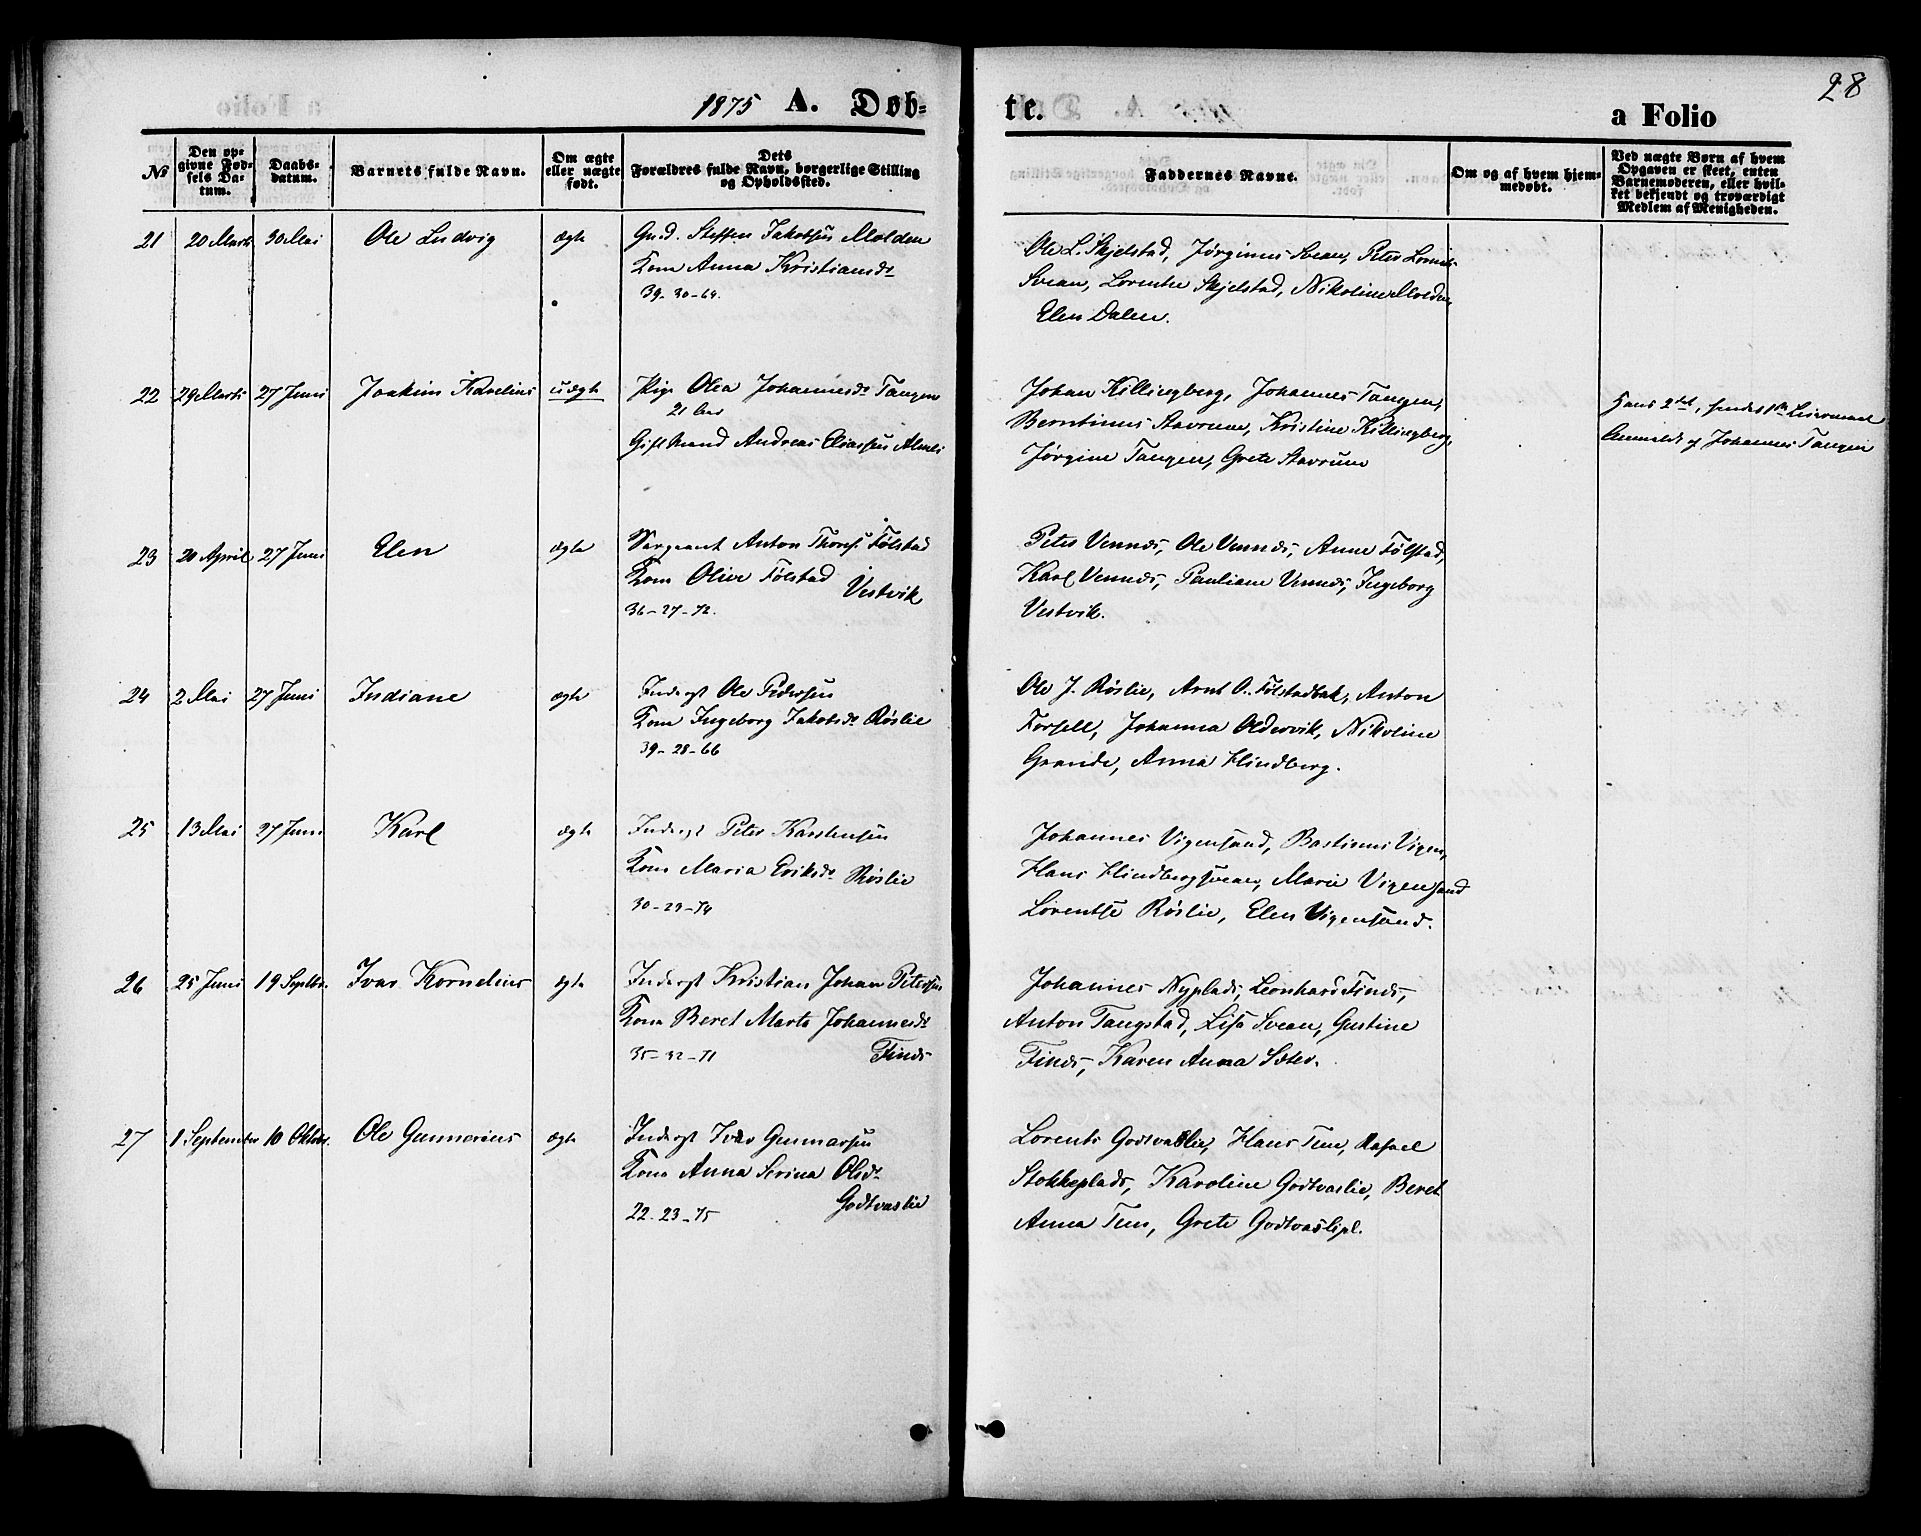 28
1875 A. Døb-
te.
a Folio
No
Den op-
givne Fød-
sels Da-
tum.
Daabs-
datum.
Barnets fulde Navn.
Om ægte
eller uægte
født.
Dets
Forældres fulde Navn, borgerlige Stilling
og Opholdssted.
Faddernes Navne.
Om og af hvem hjem-
medøbt.
Ved uægte Børn af hvem
Opgaven er skeet, enten
Barnemoderen, eller hvil-
ket bekjendt og troværdigt
Medlem af Menigheden.
21 20 Marts 30 Mai Ole Ludvig ægte Gmd. Steffen Jakobsen Molden
Kone Anna Kristiansdr
39-30-64.
Ole L. Skjelstad, Jørginus Svean, Peter Lorents
Svean, Lorentse Skjelstad, Nikoline Molden,
Elen Dalen.
22 29 Marts 27 Juni Joakim Karelius uægte Pige Olea Johannesdr Tangen
21 Aar
Gift Mand Andreas Eliassen Almli
Johan Killingberg, Johannes Tangen,
Berntinus Stavrum, Kristine Killingberg,
Jørgine Tangen, Grete Stavrum
Hans 2det, hendes 1ste Leiermaal
Anmeldt af Johannes Tangen
23 20 April 27 Juni Elen ægte Sergeant Anton Thons. Følstad
Kone Olive Følstad Vestvik
36-27-72.
Peter Vennes, Ole Vennes, Anne Følstad,
Karl Vennes, Pauliane Vennes, Ingeborg
Vestvik.
24 2 Mai 27 Juni Indiane ægte Inderst Ole Pedersen
Kone Ingeborg Jakobsdr Røslie
39-28-66
Ole J. Røslie, Arnt O. Følstadbak, Anton
Forsell, Johanna Oldervik, Nikoline
Grande, Anna Hindberg.
25 13 Mai 27 Juni Karl ægte Inderst Peter Karstensen
Kone Maria Eriksdr Røslie
30-29-74
Johannes Vigensand, Bastinus Vigen,
Hans Hindbergsvean, Marie Vigensand
Lorentse Røslie, Elen Vigensand.
26 25 Juni 19 Septbr. Ivar Kornelius ægte Inderst Kristian Johan Petersen
Kone Beret Marta Johannesdr
35-32-71 Finds
Johannes Nyplads, Leonhard Finds,
Anton Tangstad, Lisa Svean, Gustine
Finds, Karen Anna Sæter.
27 1 September 10 Oktbr. Ole Gunnerius ægte Inderst Ivar Gunnarsen
Kone Anna Serina Olsdr
22-23-75 Godtvaslie
Lorents Godtvaslie, Hans Tem, Rafael
Stokkeplads, Karoline Godtvaslie, Beret
Anna Tem, Grete Godtvaslipl.